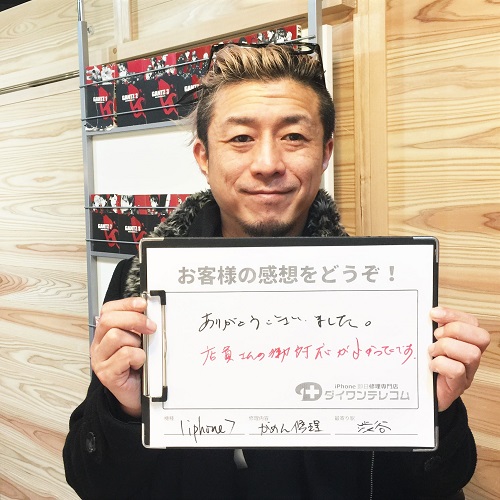 GANTZ 1
GANTZ 2
GANTZ 3
お客様の感想をどうぞ！
ありがとうございました。
店員さんの御対応がよかったです。
iPhone 即日修理専門店
ダイワンテレコム
機種 iphone7 修理内容 がめん修理 最寄り駅 渋谷